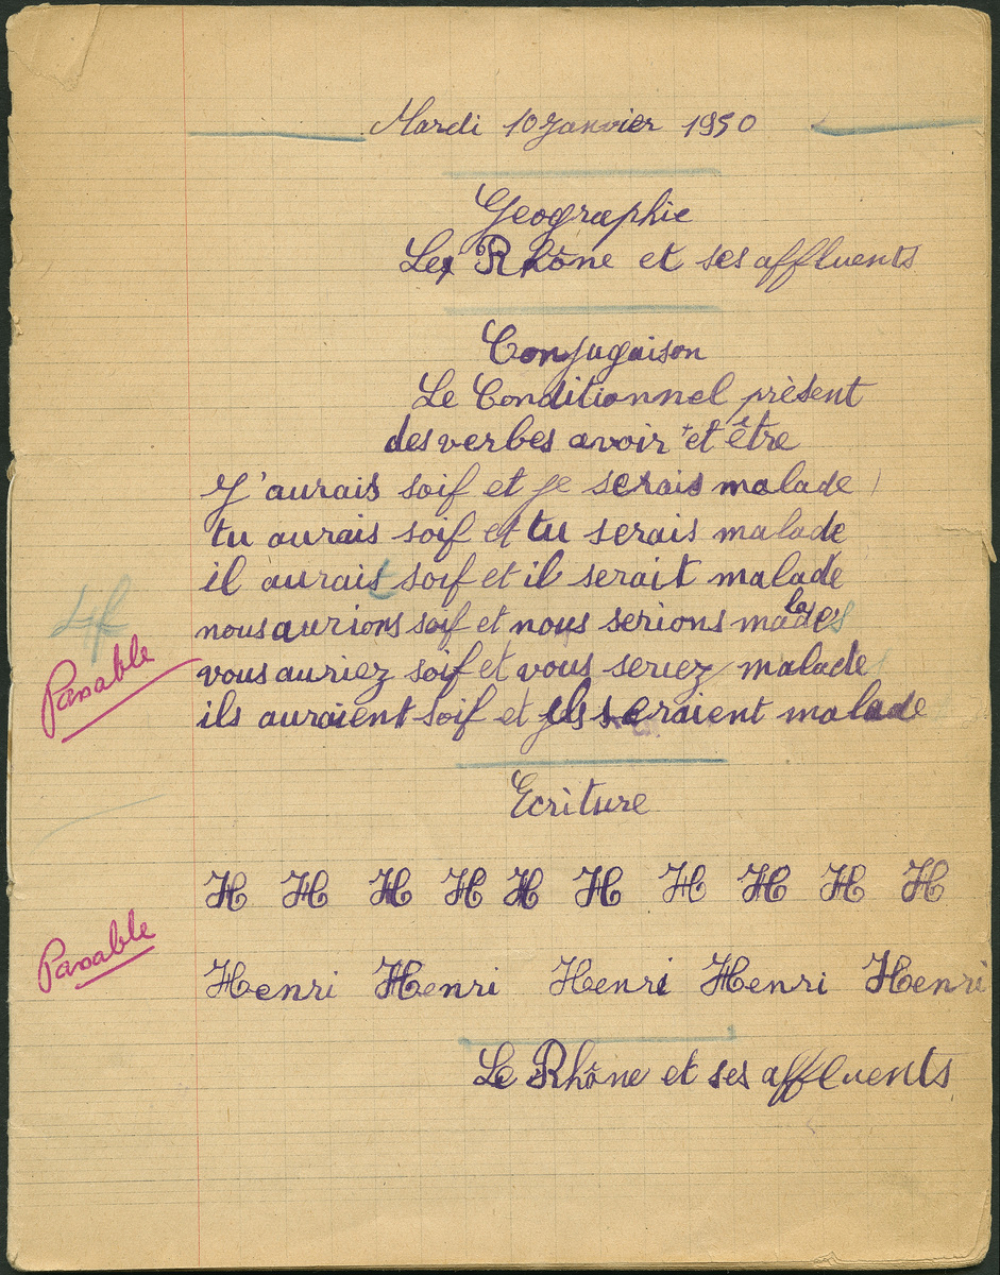 Mardi 10 Janvier 1950
Geographie
Le Rhône et ses affluents
Conjugaison
Le Conditionnel prèsent
des verbes avoir et être
J'aurais soif et je serais malade
tu aurais soif et tu serais malade
il aurait soif et il serait malade
4f
nous aurions soif et nous serions malades
Passable
vous auriez soif et vous seriez malade
ils auraient soif et ils seraient malade
Ecriture
H H H H H H H H H H
Passable
Henri Henri Henri Henri Henri
Le Rhône et ses affluents